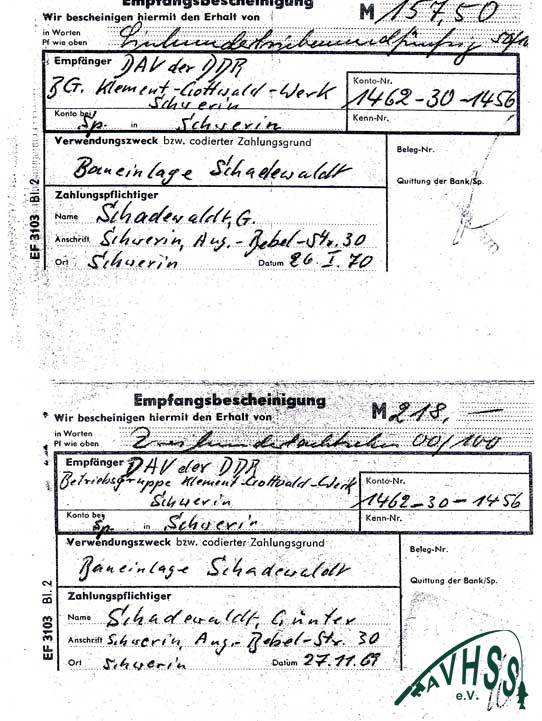 Empfangsbescheinigung
Wir bescheinigen hiermit den Erhalt von M 157,50
in Worten
Pf wie oben Einhundertsiebenundfünfzig 50/100
Empfänger DAV der DDR
BG. Klement-Gottwald-Werk
Schwerin
Konto-Nr.
1462-30-1456
Konto bei Sp. in Schwerin
Kenn-Nr.
Verwendungszweck bzw. codierter Zahlungsgrund
Baueinlage Schadewaldt
Beleg-Nr.
Quittung der Bank/Sp.
Zahlungspflichtiger
Name Schadewaldt, G.
Anschrift Schwerin, Aug.-Bebel-Str. 30
Ort Schwerin Datum 26. I. 70
EF 3103 Bl. 2
Empfangsbescheinigung
Wir bescheinigen hiermit den Erhalt von M 218,—
in Worten
Pf wie oben Zweihundertachtzehn 00/100
Empfänger DAV der DDR
Betriebsgruppe Klement-Gottwald-Werk
Schwerin
Konto-Nr.
1462-30-1456
Konto bei Sp. in Schwerin
Kenn-Nr.
Verwendungszweck bzw. codierter Zahlungsgrund
Baueinlage Schadewaldt
Beleg-Nr.
Quittung der Bank/Sp.
Zahlungspflichtiger
Name Schadewaldt, Günter
Anschrift Schwerin, Aug.-Bebel-Str. 30
Ort Schwerin Datum 27.11.69
EF 3103 Bl. 2
AVHSS
e.V.